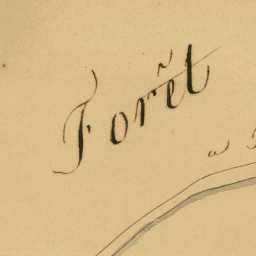 Forêt